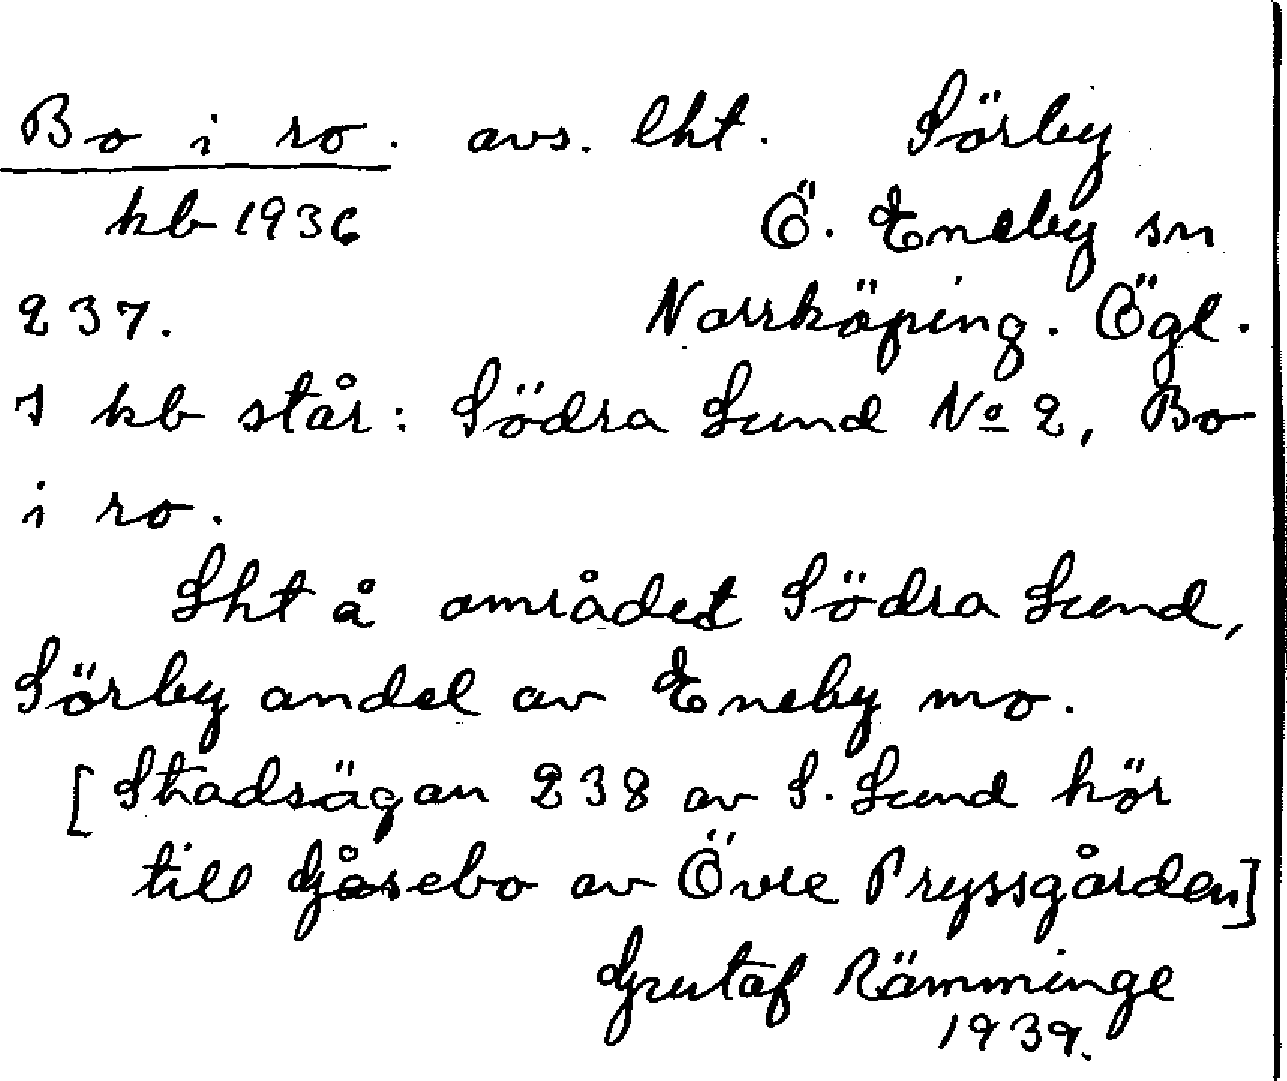 Bo i ro. avs. lht. Sörby
kb 1936 Ö. Eneby sn
237. Norrköping. Ögl.
I kb står: Södra Lund No 2, Bo
i ro.
Lht å området Södra Lund,
Sörby andel av Eneby mo.
[Stadsägan 238 av S. Lund hör
till Gåsebo av Övre Pryssgården]
Gustaf Rämminge
1939.